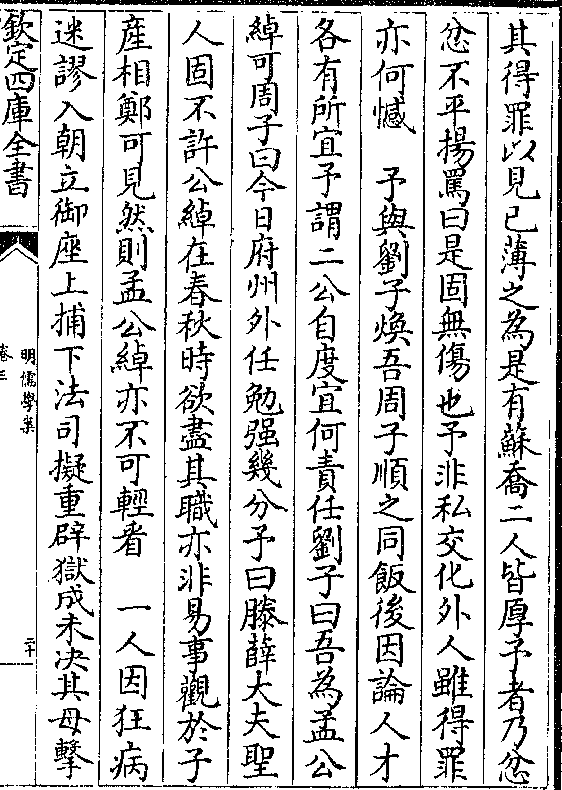 其得罪以見已薄之為是有蘇喬二人皆厚予者乃忿
忿不平揚罵曰是固無傷也予非私交化外人雖得罪
亦何憾　予與劉子煥吾周子順之同飯後因論人才
各有所宜予謂二公自度宜何責任劉子曰吾為孟公
綽可周子曰今日府州外任勉强幾分予曰滕薛大夫聖
人固不許公綽在春秋時欲盡其職亦非易事觀於子
產相鄭可見然則孟公綽亦不可輕看　一人因狂病
迷謬入朝立御座上捕下法司擬重辟獄成未决其母擊
欽定四庫全書
明儒學案
卷三
二十